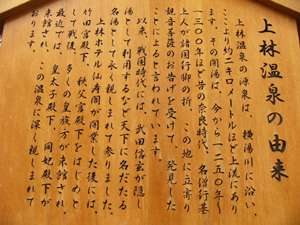 上林温泉の由来
上林温泉の源泉は、横湯川に沿い、
ここより約二キロメートルほど上流にあり
ます。その開湯は、今から一二五〇年～
一三〇〇年ほど昔の奈良時代、名僧行基
上人が諸国行脚の折、この地に立寄り
観音菩薩のお告げを受けて、発見した
ことによると言われています。
以来、戦国時代には、武田信玄が隠し
湯として利用するなど天下に名だたる
名湯として永く親しまれて参りました。
上林ホテル仙寿閣が開業した後には、
竹田宮殿下、秩父宮殿下をはじめと
して戦後、多くの皇族方が来館され、
最近では、皇太子殿下、同妃殿下が
来館され、この温泉に深く親しまれて